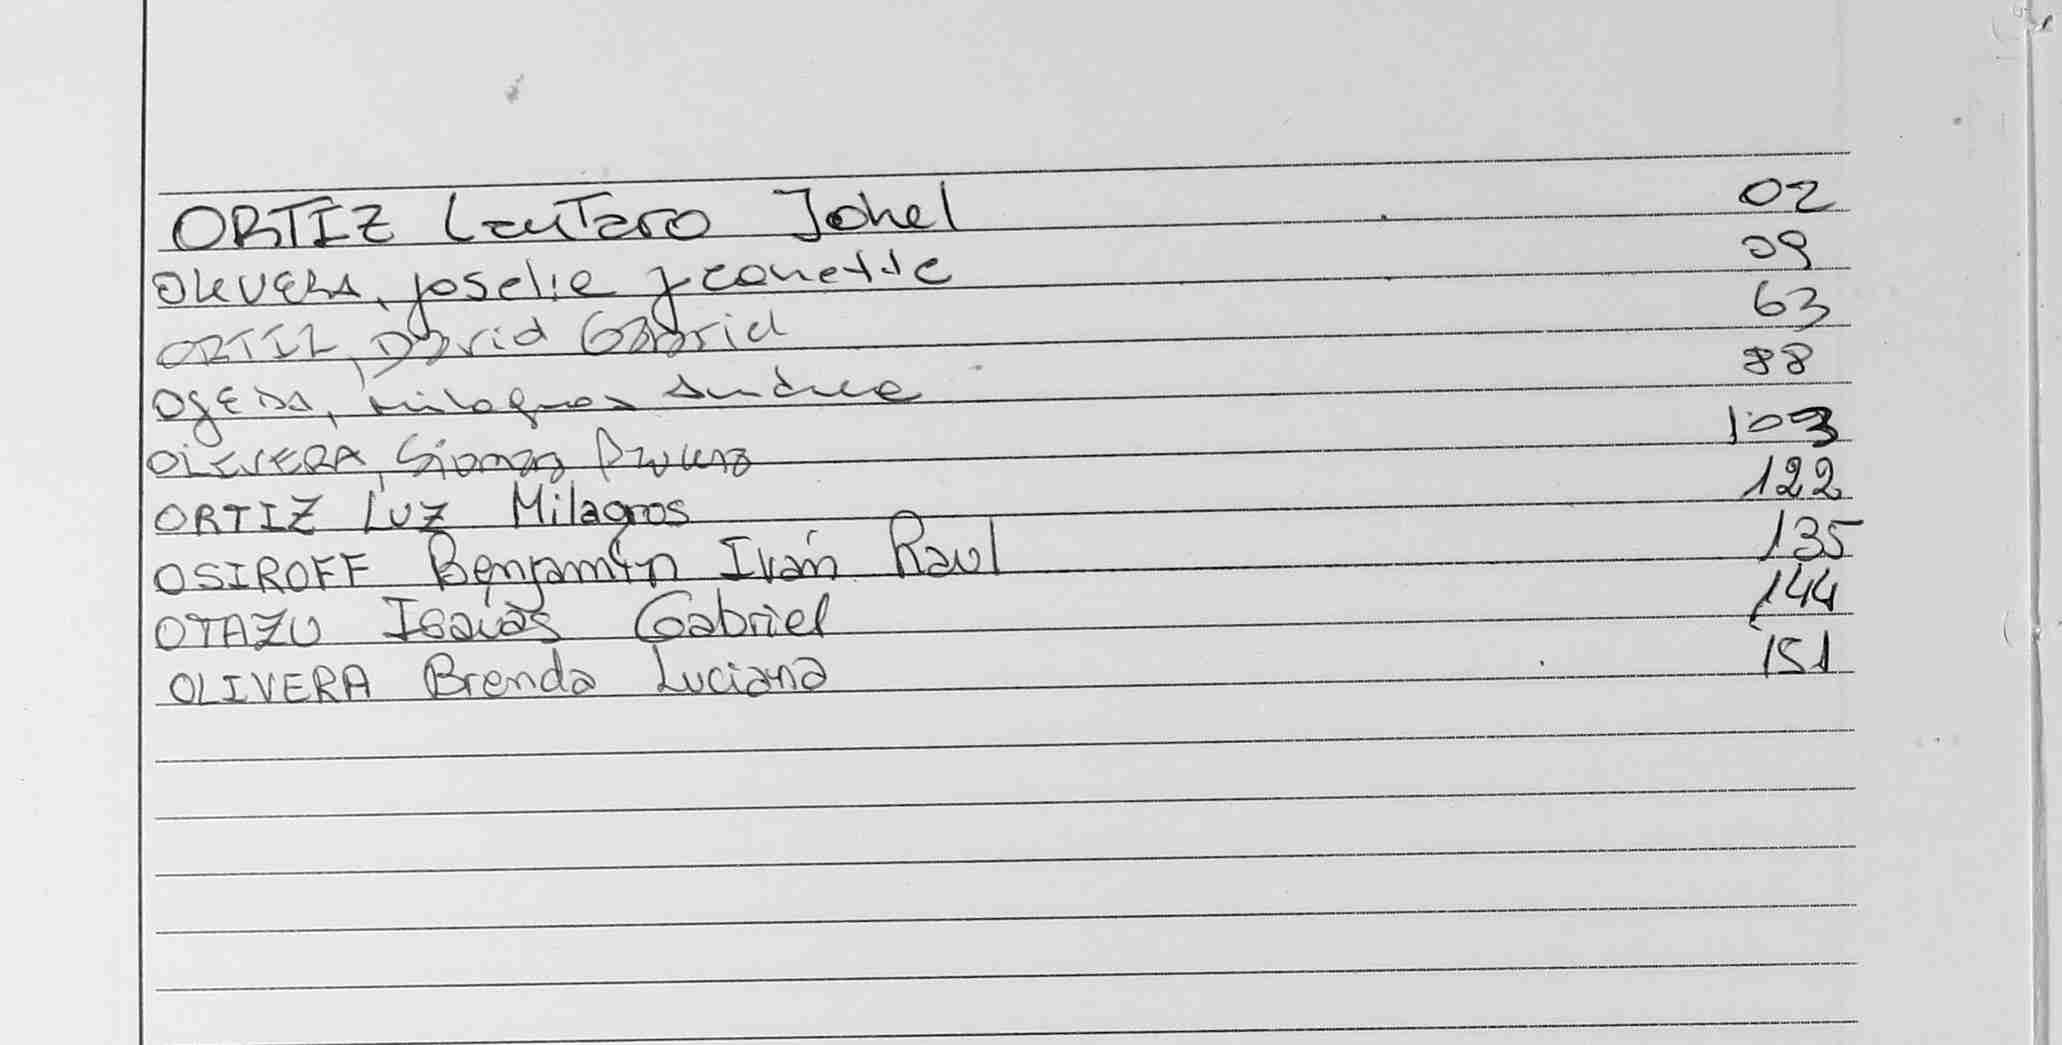 ORTIZ Lautaro Johel 02
OLIVERA, Joselie Jeanette 09
ORTIZ, David Gabriel 63
OJEDA, Milagros 88
OLIVERA, 103
ORTIZ Luz Milagros 122
OSIROFF Benjamín Iván Raul 135
OTAZU Isaías Gabriel 144
OLIVERA Brenda Luciana 151